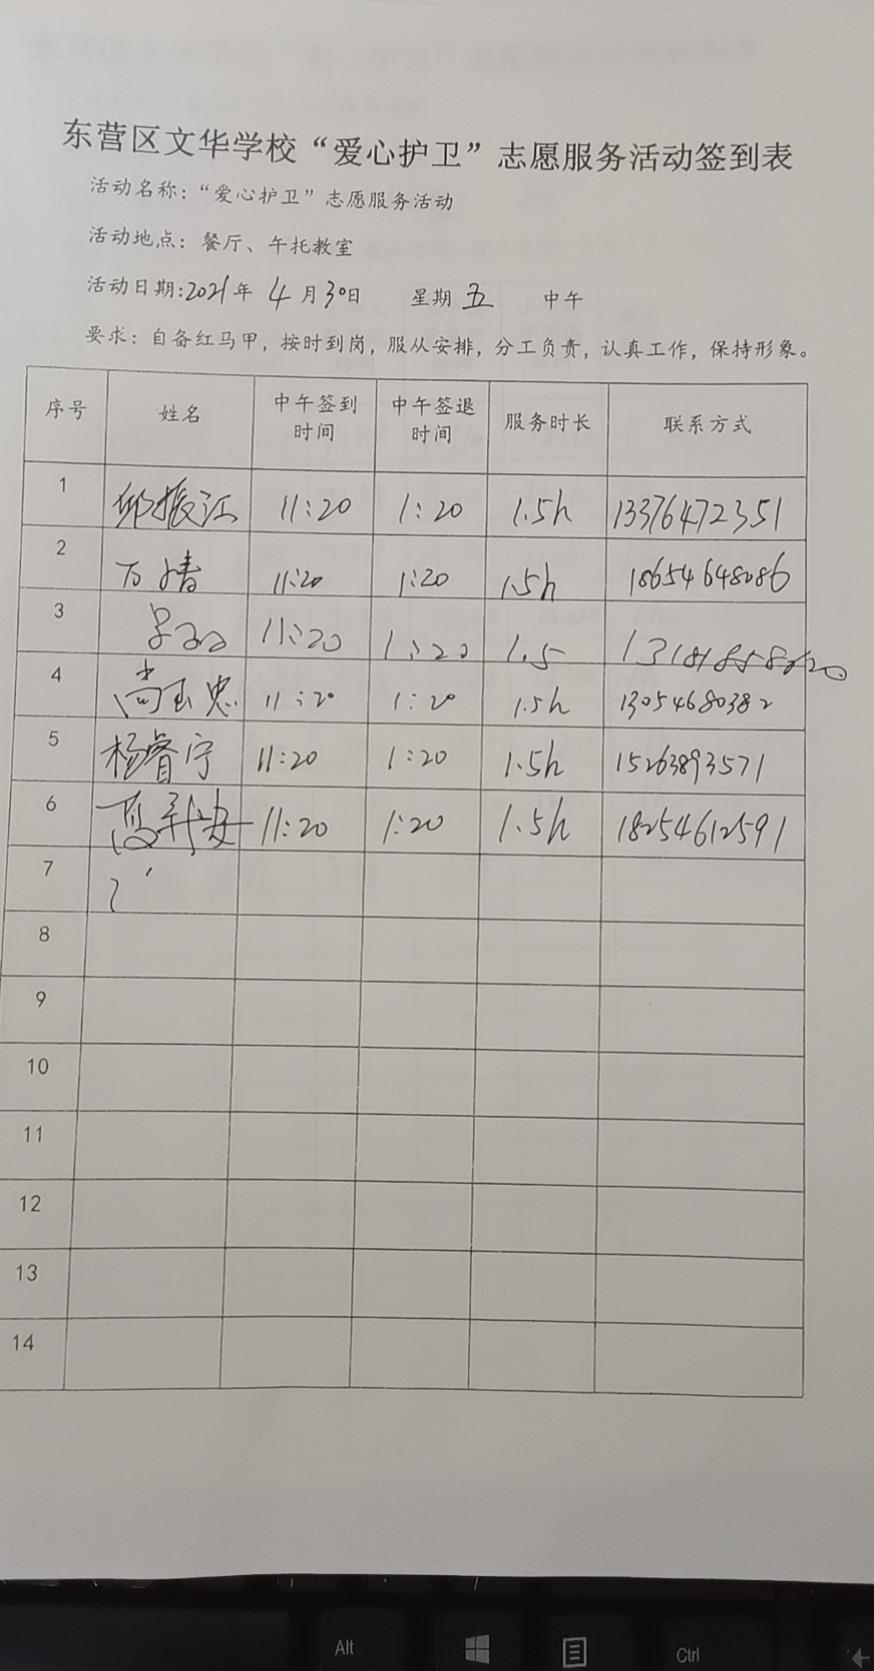 东营区文华学校“爱心护卫”志愿服务活动签到表
活动名称：“爱心护卫”志愿服务活动
活动地点：餐厅、午托教室
活动日期:2021年 4月30日 星期五 中午
要求：自备红马甲，按时到岗，服从安排，分工负责，认真工作，保持形象。
序号 姓名 中午签到时间 中午签退时间 服务时长 联系方式
1 邱振江 11:20 1:20 1.5h 13376472351
2 万婧 11:20 1:20 1.5h 18654648086
3 11:20 1:20 1.5
4 尚玉忠 11:20 1:20 1.5h 13054680382
5 杨睿宁 11:20 1:20 1.5h 15263893571
6 11:20 1:20 1.5h 18254612591
7
8
9
10
11
12
13
14
Alt
Ctrl